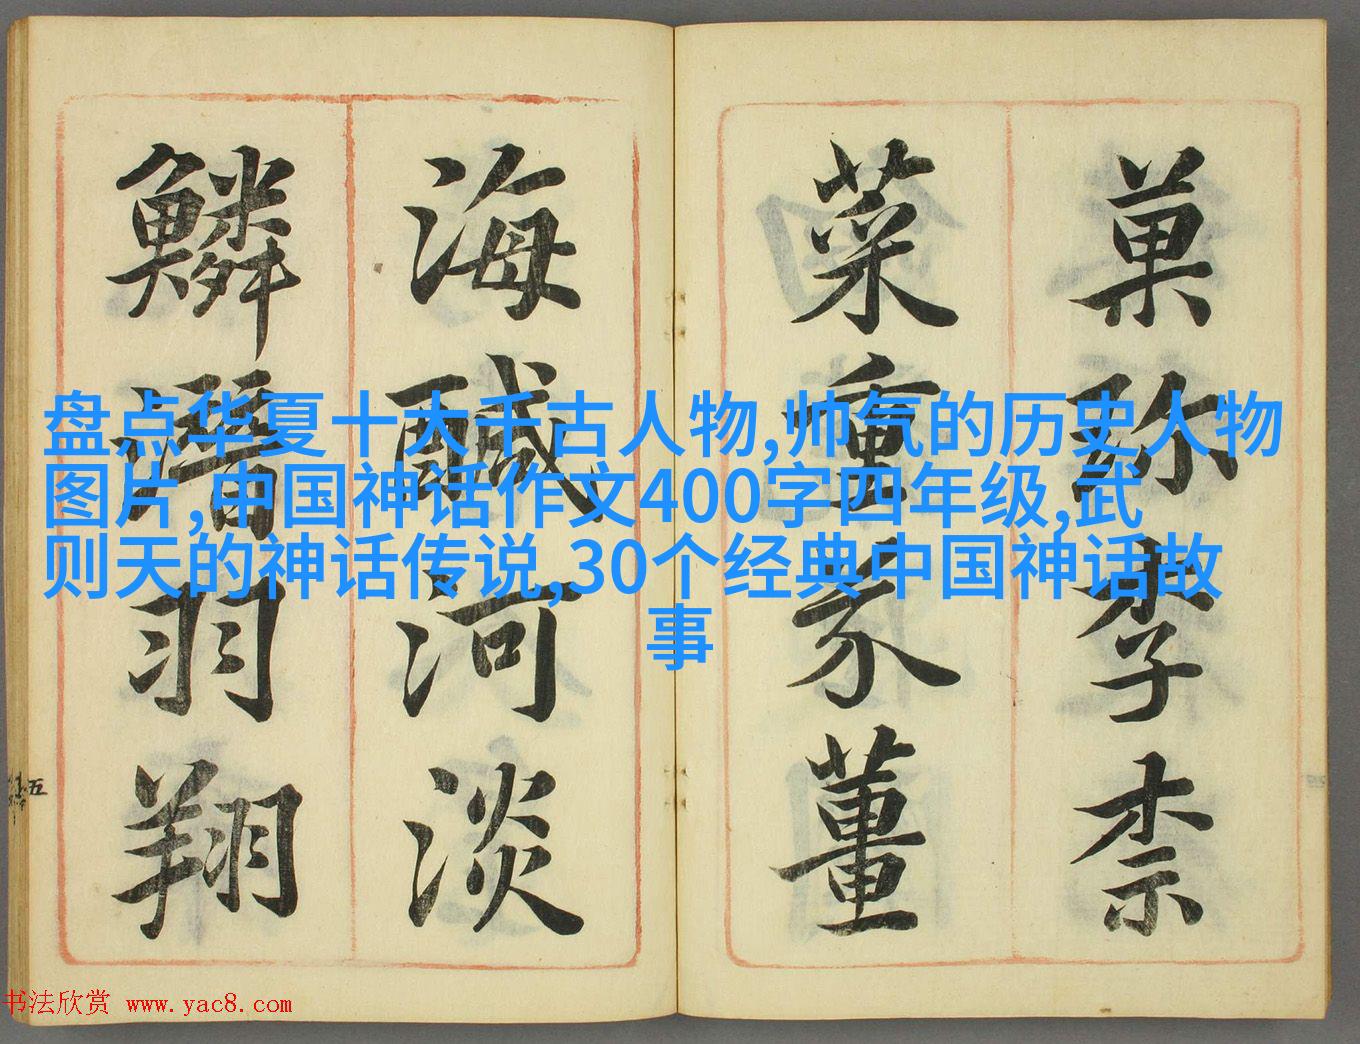 菓珎李柰
菜重芥薑
海鹹河淡
鱗潛羽翔
五
盘点华夏十大千古人物,帅气的历史人物
图片,中国神话作文400字四年级,武
则天的神话传说,30个经典中国神话故
事
书法欣赏 www.yac8.com